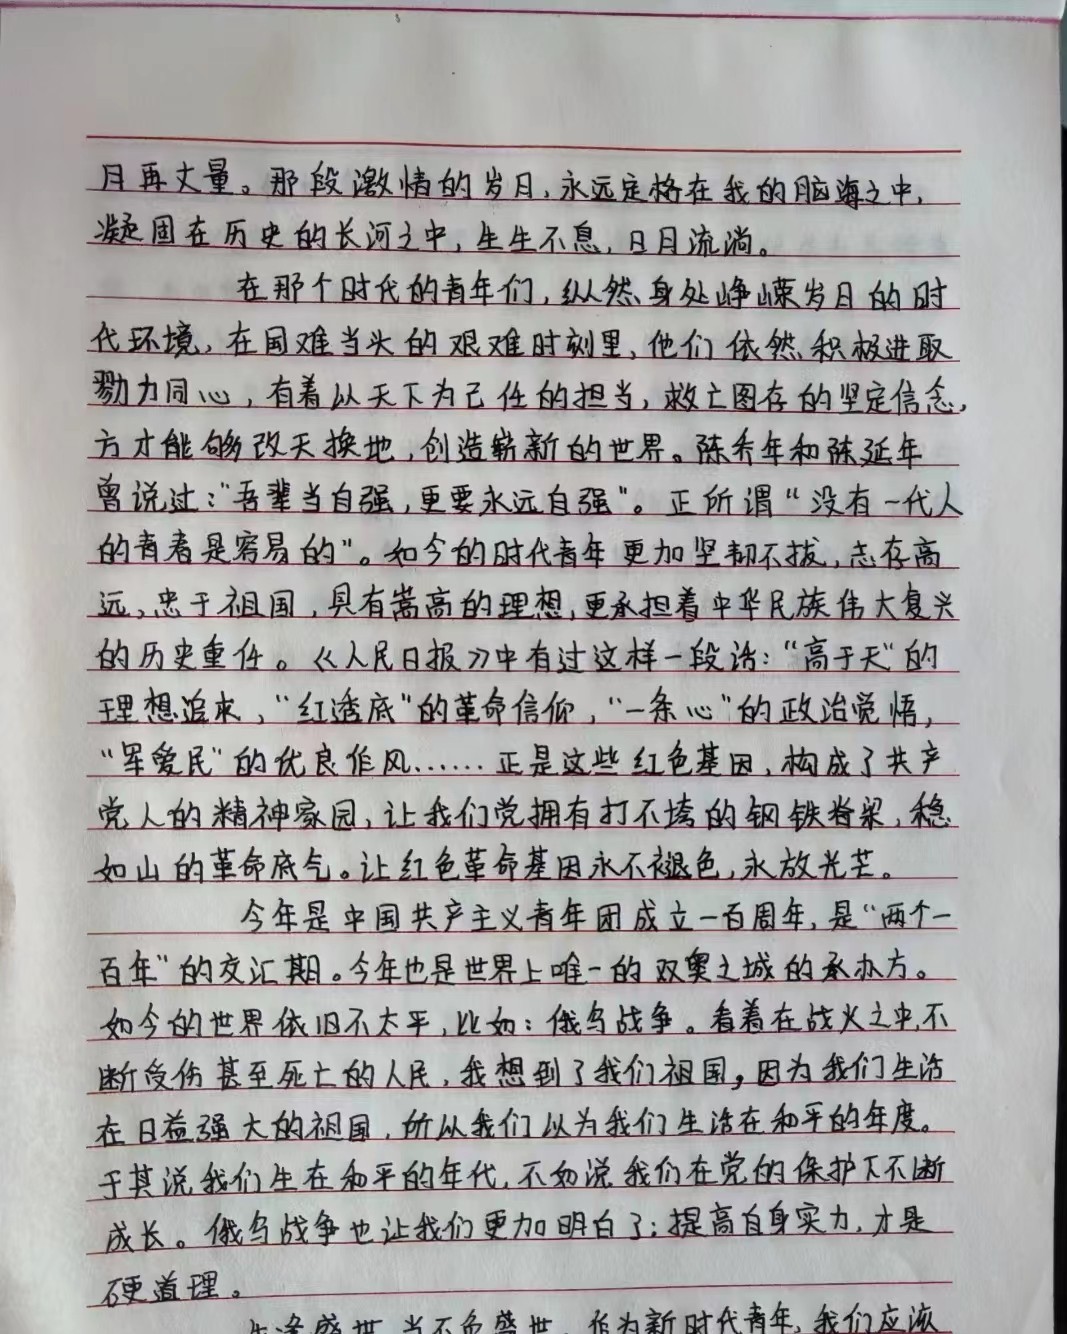 月再丈量。那段激情的岁月，永远定格在我的脑海之中，
凝固在历史的长河之中，生生不息，日月流淌。
在那个时代的青年们，纵然身处峥嵘岁月的时
代环境，在国难当头的艰难时刻里，他们依然积极进取
勠力同心，有着以天下为己任的担当，救亡图存的坚定信念，
方才能够改天换地，创造崭新的世界。陈乔年和陈延年
曾说过：“吾辈当自强，更要永远自强”。正所谓“没有一代人
的青春是容易的”。如今的时代青年更加坚韧不拔，志存高
远，忠于祖国，具有嵩高的理想，更承担着中华民族伟大复兴
的历史重任。《人民日报》中有过这样一段话：“高于天”的
理想追求，“红透底”的革命信仰，“一条心”的政治觉悟，
“军爱民”的优良作风……正是这些红色基因，构成了共产
党人的精神家园，让我们党拥有打不垮的钢铁脊梁，稳
如山的革命底气。让红色革命基因永不褪色，永放光芒。
今年是中国共产主义青年团成立一百周年，是“两个一
百年”的交汇期。今年也是世界上唯一的双奥之城的承办方。
如今的世界依旧不太平，比如：俄乌战争。看着在战火之中，不
断受伤甚至死亡的人民，我想到了我们祖国，因为我们生活
在日益强大的祖国，所以我们以为我们生活在和平的年度。
于其说我们生在和平的年代，不如说我们在党的保护下不断
成长。俄乌战争也让我们更加明白了；提高自身实力，才是
硬道理。
生逢盛世，当不负盛世，作为新时代青年，我们应该